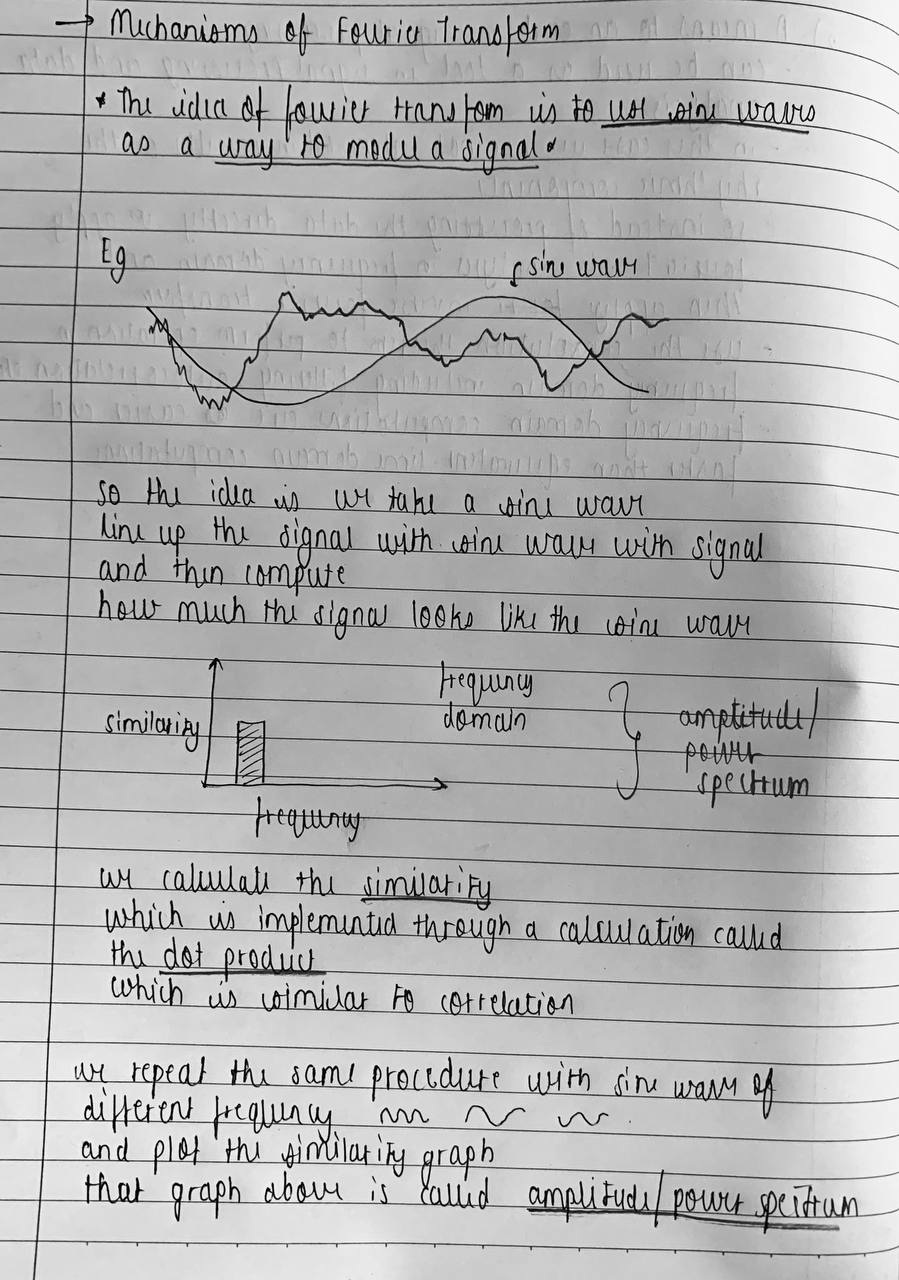 → Mechanisms of Fourier Transform
* The idea of fourier transfom is to use sine waves
as a way to model a signal.
Eg
sine wave
so the idea is we take a sine wave
line up the signal with sine wave with signal
and then compute
how much the signal looks like the sine wave
similarity
frequency
domain
amptitude/
power
spectrum
frequency
we calculate the similarity
which is implemented through a calculation called
the dot product
which is similar to correlation
we repeat the same procedure with sine wave of
different frequency
and plot the similarity graph
that graph above is called amplitude/power spectrum